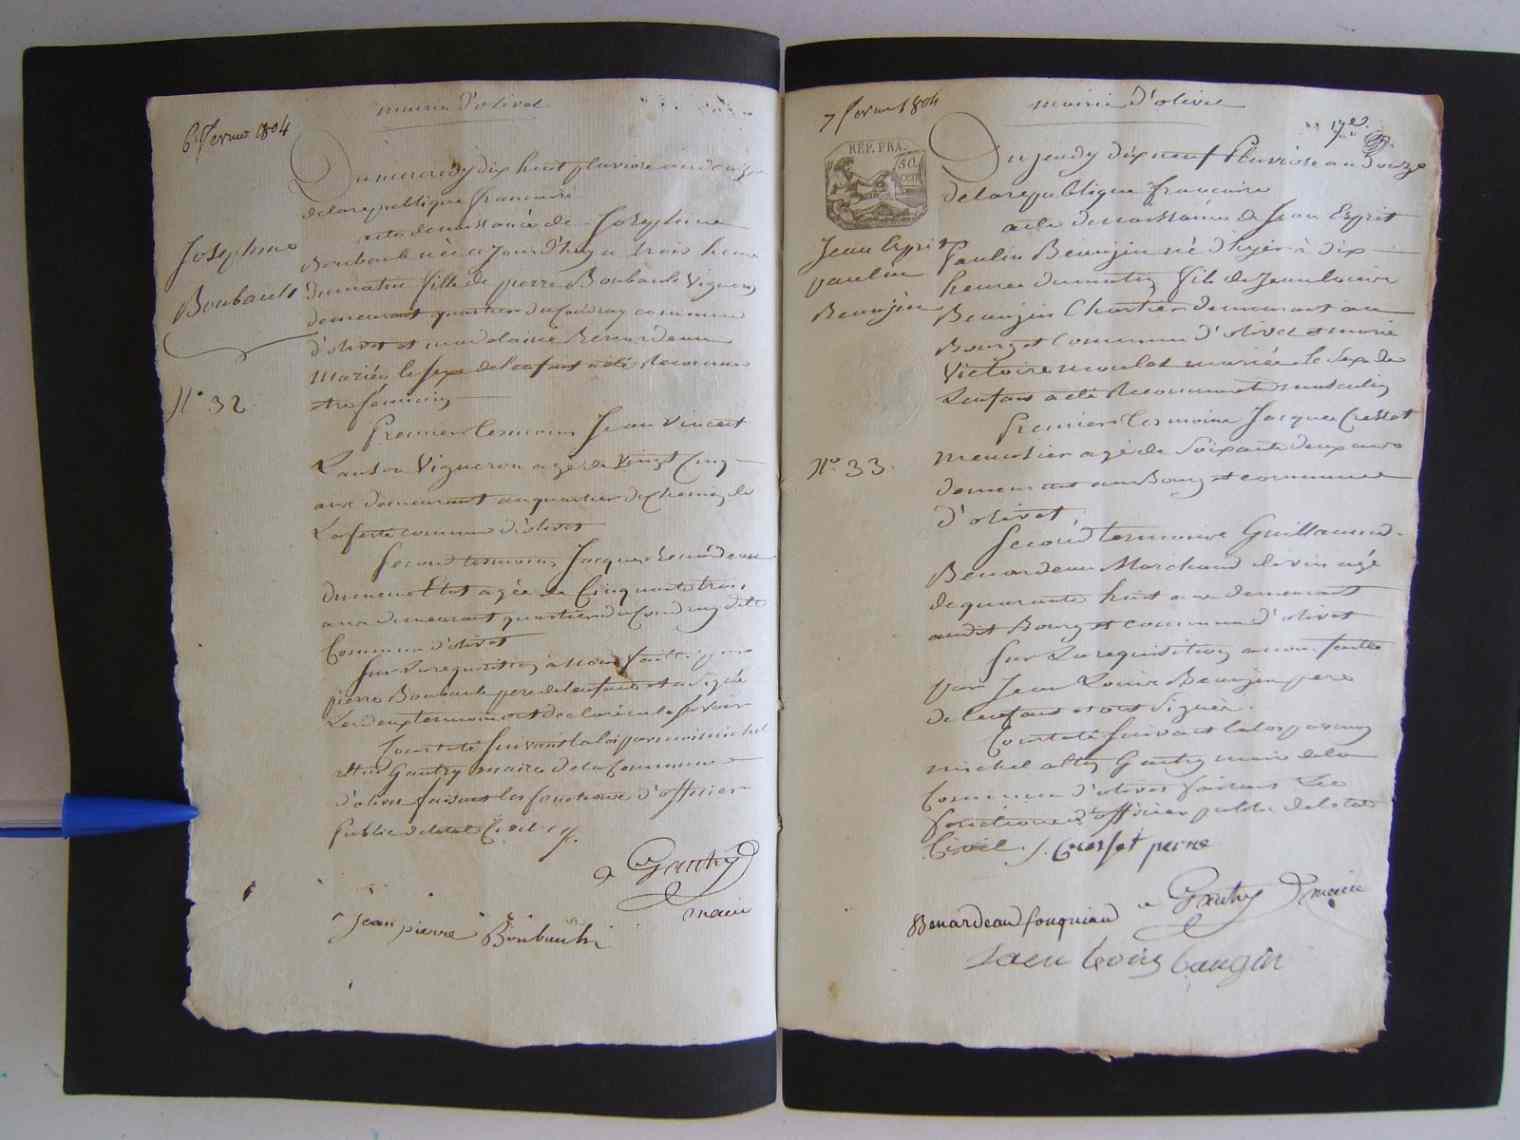 mairie d'olivet
6 fevrier 1804
Du mercredy dix huit pluviose an douze
de la republique francaise
acte de naissance de Josephine
Josephine
Boubault née ce jourd'huy a trois heures
Boubault
du matin fille de pierre Boubault Vigneron
demeurant quartier du Coudray commune
d'olivet et magdelaine Benardeau
Mariés le sexe de l'enfant a été reconnu
N° 32
etre féminin
Premier temoin Jean Vincent
Vigneron agé de Vingt Cinq
ans demeurant au quartier du chemin de
La ferté commune d'olivet
Second temoin Jacques Benardeau
du meme Etat agée de Cinquante trois
ans demeurant quartier du Coudray dite
Commune d'olivet
Sur La requisition à Nous faite par
pierre Boubault pere de l'enfant et a Signé
Les deux temoins ont declaré ne le savoir
Constaté Suivant la loi par moi michel
Gautry maire de la Commune
d'olivet faisant les fonctions d'officier
Public de l'etat Civil
Gautry
maire
Jean pierre Boubault
mairie d'olivet
7 fevrier 1804
REP. FRA.
50.
CEN
Du jeudy dix neuf Pluviose an Douze
de la republique francaise
acte de naissance de Jean Esprit
Jean Esprit
Paulin Beaujin né d'hyer à dix
paulin
heures du matin fils de Jean Louis
Beaujin
Beaujin Charetier demeurant au
Bourg et Commune d'olivet et marie
Victoire moulat mariée le Sexe de
L'enfant a été Reconnu masculin
Premier temoins Jacques Cressot
N° 33.
menuisier agé de Soixante deux ans
demeurant au Bourg et commune
d'olivet
Second temoins Guillaume
Benardeau Marchand de vin agé
de quarante huit ans demeurant
audit Bourg et commune d'olivet
Sur La requisition a nous faite
par Jean Louis Beaujin pere
de l'enfant et ont Signé.
Constaté Suivant la loi par moi
michel Gautry maire de la
Commune d'olivet faisant Les
fonctions d'officier public de l'etat
Civil. Cressot perre
Gautry maire
Benardeau fouqueau
Jaen Louis baugin